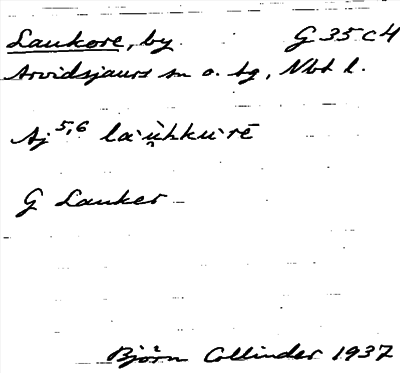 Laukore, by G 35 c 4
Arvidsjaurs sn o. tg, Nbt l.
Aj 5,6 la·ụ̀hku·rē
G Lauker
Björn Collinder 1937